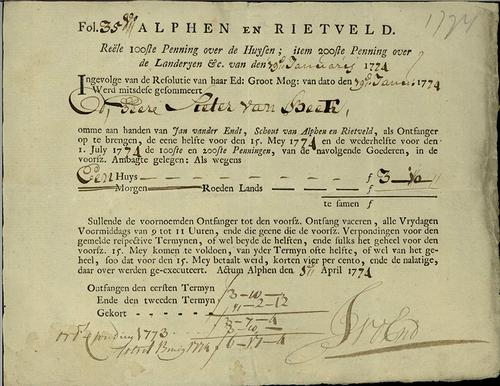 1774
Fol. 35 ALPHEN EN RIETVELD.
Reële 100ste Penning over de Huysen; item 200ste Penning over
de Landeryen &c. van den January 1774
Ingevolge van de Resolutie van haar Ed: Groot Mog: van dato den 1774
Werd mitsdese gesommeert
De Heere Pieter van Beek,
omme aan handen van Jan vander Endt, Schout van Alphen en Rietveld, als Ontfanger
op te brengen, de eene helfte voor den 15. Mey 1774 en de wederhelfte voor den
1. July 1774 de 100ste en 200ste Penningen, van de navolgende Goederen, in de
voorsz. Ambagte gelegen: Als wegens
Een Huys - - - - - - - f 3 - 10
Morgen Roeden Lands - - - - f
te samen f
Sullende de voornoemden Ontfanger tot den voorsz. Ontfang vaceren, alle Vrydagen
Voormiddags van 9 tot 11 Uuren, ende die geene die de voorsz. Verpondingen voor den
gemelde respective Termynen, of wel beyde de helften, ende sulks het geheel voor den
voorsz. 15. Mey komen te voldoen, van yder Termyn ofte helfte, of wel van het ge-
heel, soo dat voor den 15. Mey betaalt werd, korten vier per cento, ende de nalatige,
daar over werden ge-executeert. Actum Alphen den April 1774
Ontfangen den eersten Termyn f 3-10-
Ende den tweeden Termyn
Gekort - - - - - - -2-12
3-7-4
1773 3-10-
1774 f 6-17-4